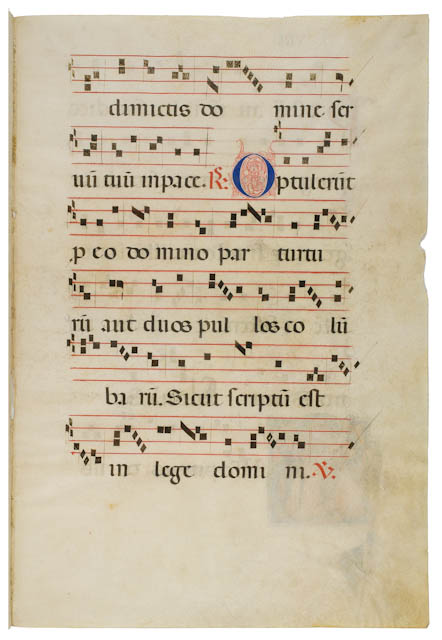 dimictis do mine ser
uū tuū in pace. R: Optulerūt
p eo domino par turtu
rū aut duos pul los co lū
ba rū. Sicut scriptū est
in lege domi ni. V.